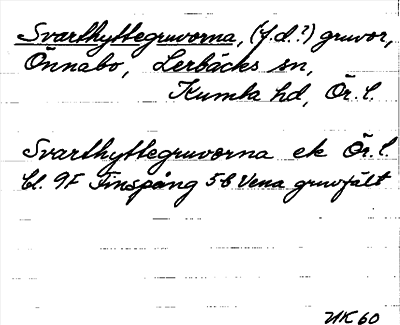 Svarthyttegruvorna, (f.d.?) gruvor,
Önnabo, Lerbäcks sn,
Kumla hd, Ör. l.
Svarthyttegruvorna ek Ör. l.
bl. 9F Finspång 5-6 Vena gruvfält
NK 60